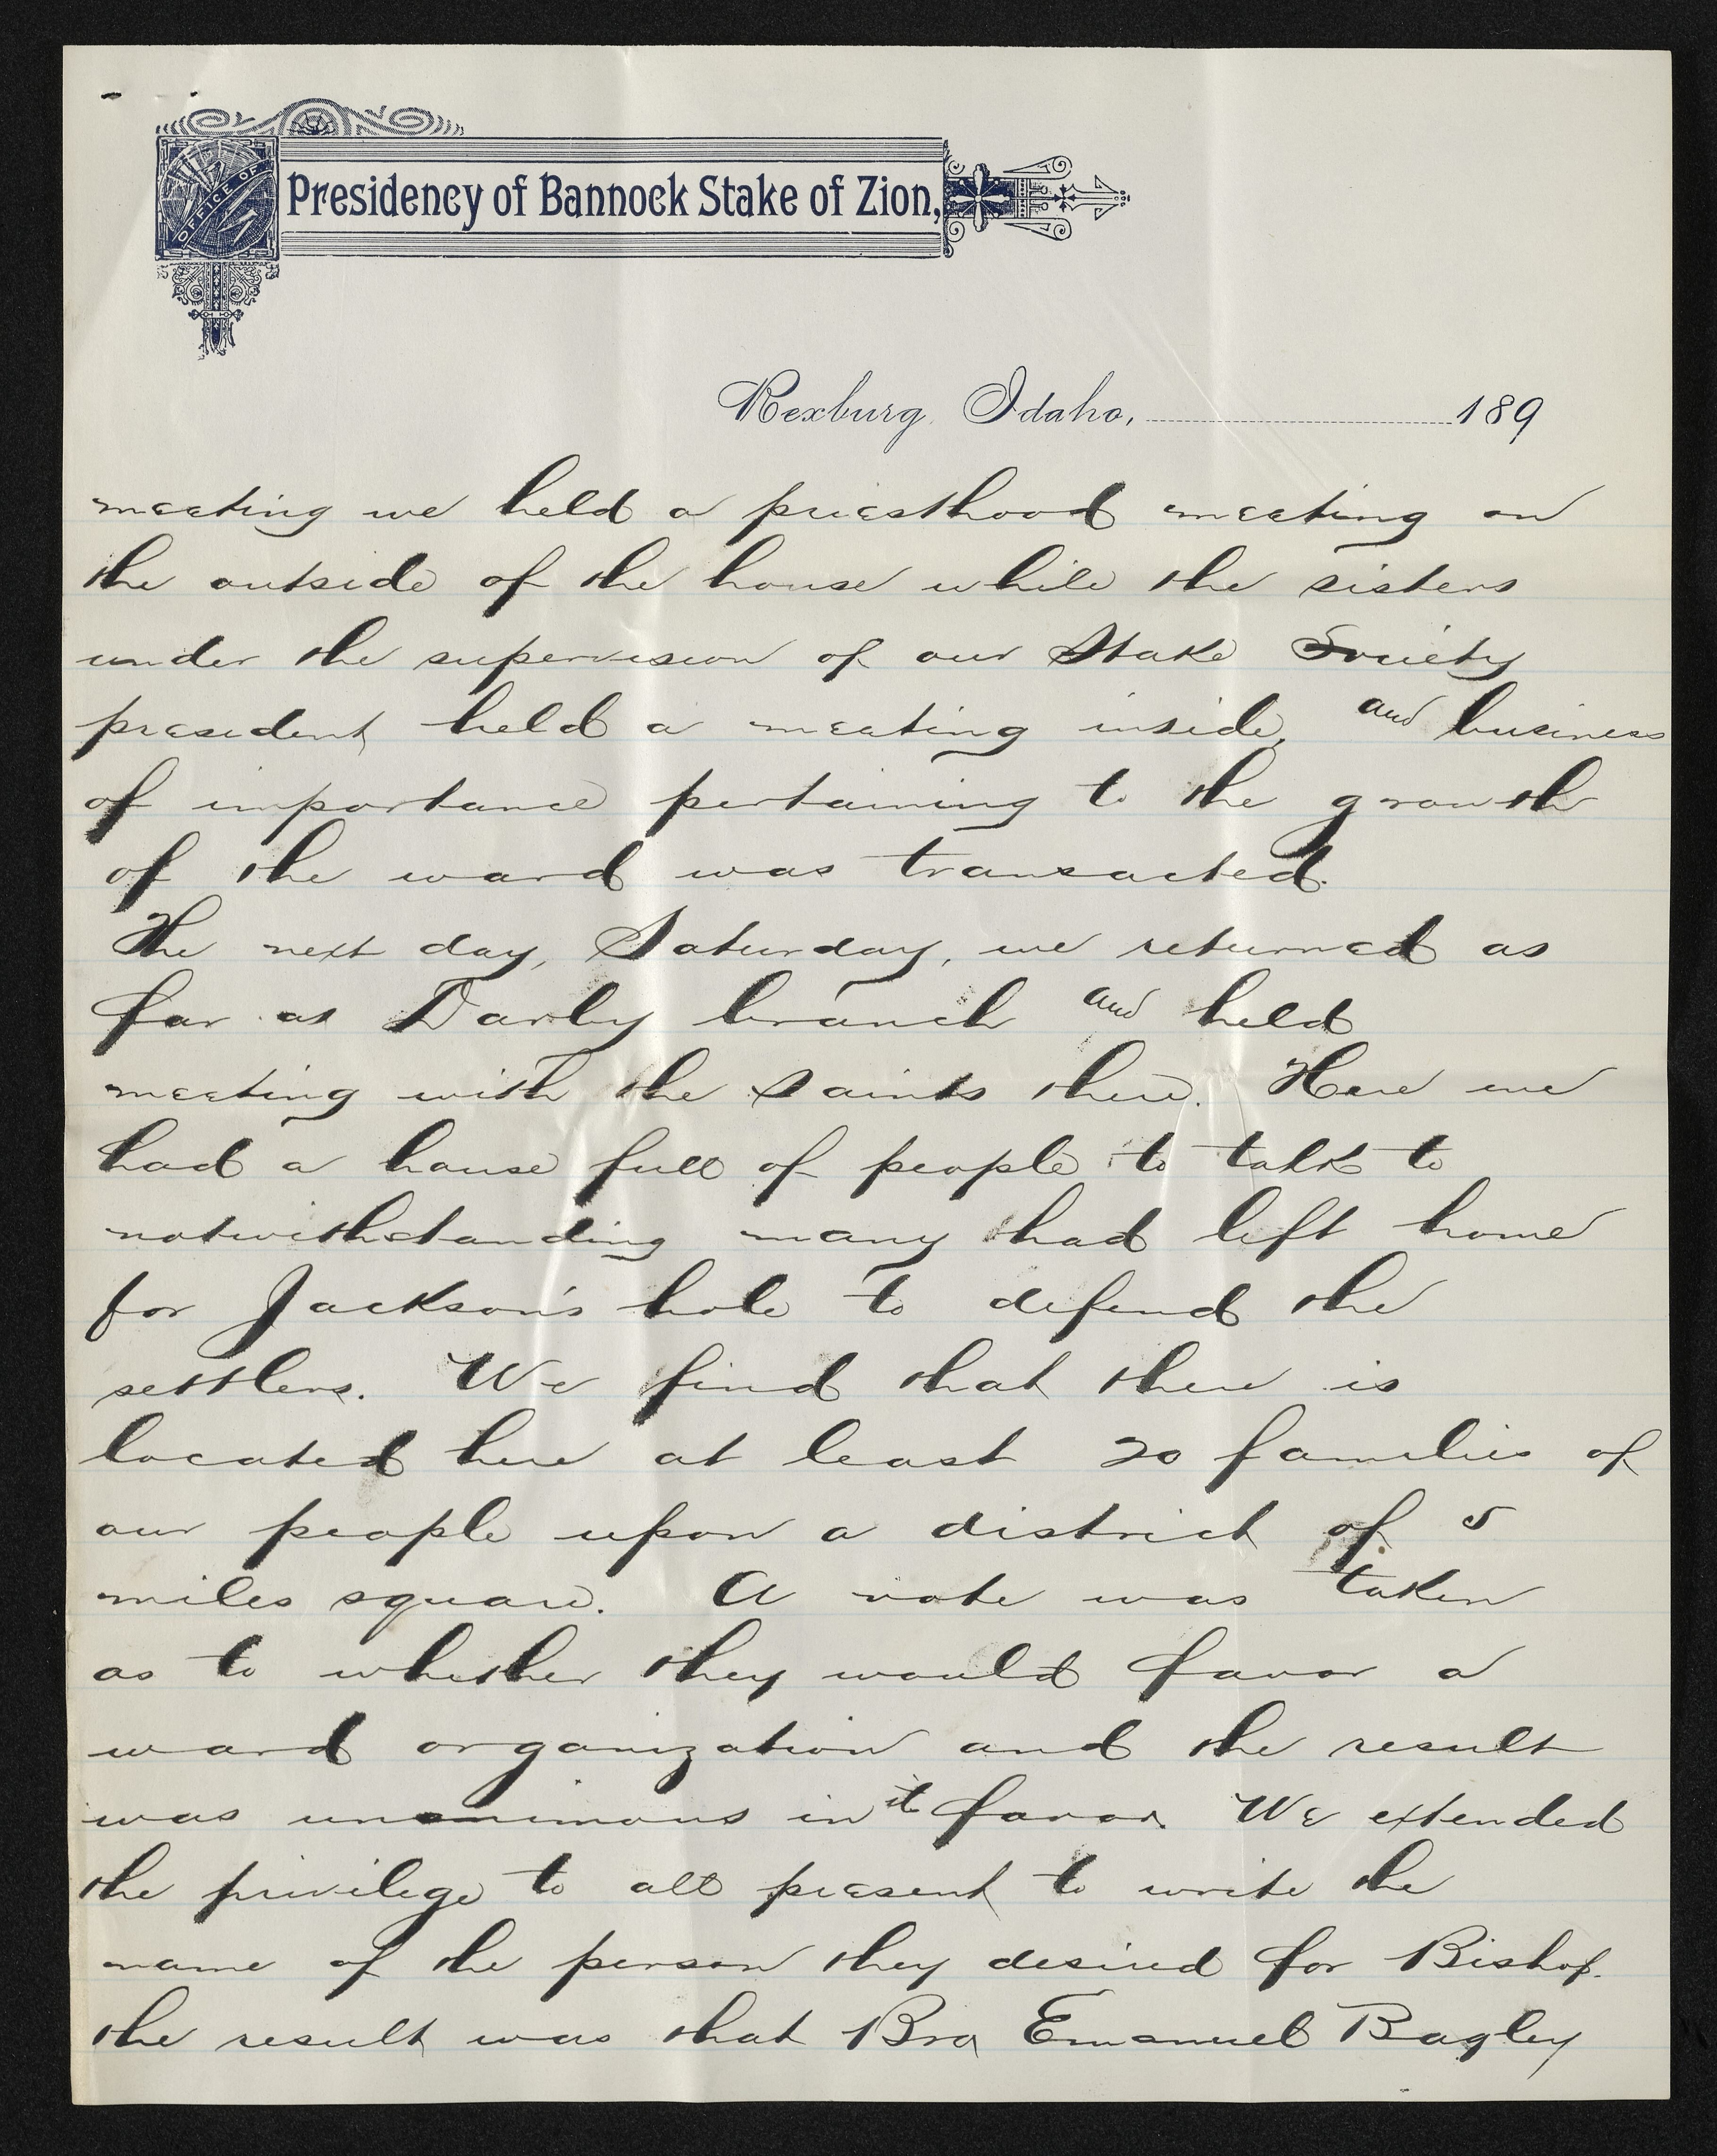 OFFICE OF
Presidency of Bannock Stake of Zion,
Rexburg, Idaho, 189
meeting we held a priesthood meeting on
the outside of the house while the sisters
under the supervision of our Stake Society
president held a meeting inside, and business
of importance pertaining to the growth
of the ward was transacted.
The next day, Saturday, we returned as
far as Darby branch and held
meeting with the Saints there. Here we
had a house full of people to talk to
notwithstanding many had left home
for Jackson's hole to defend the
settlers. We find that there is
located here at least 20 families of
our people upon a district of 5
miles square. A vote was taken
as to whether they would favor a
ward organization and the result
was unanimous in it favor. We extended
the privilege to all present to write the
name of the person they desired for Bishop.
the result was that Bro Emanuel Bagley